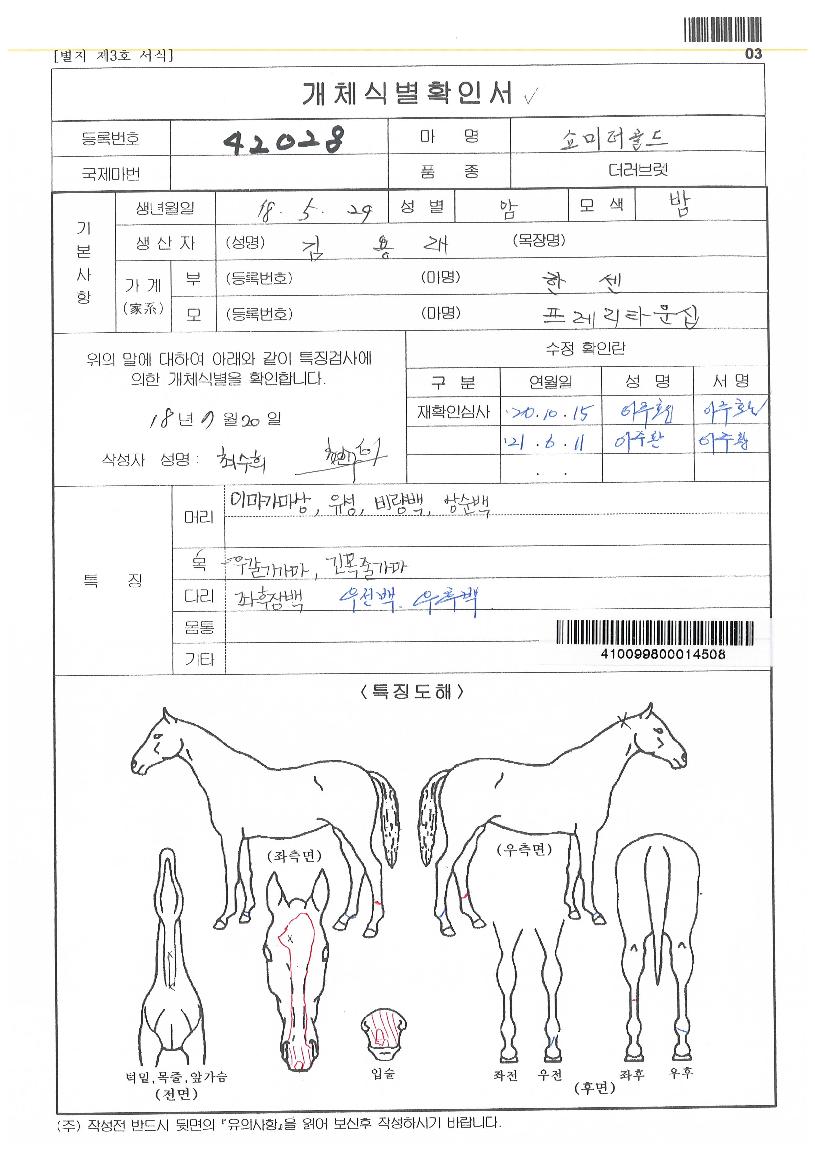 03
[별지 제3호 서식]
개체식별확인서
등록번호 42028 마 명 쇼미더골드
국제마번 품 종 더러브렛
기본사항
생년월일 18. 5. 29 성 별 암 모 색 밤
생산자 (성명) 김용래 (목장명)
가계 (家系) 부 (등록번호) (마명) 한센
모 (등록번호) (마명) 프레리타문집
위의 말에 대하여 아래와 같이 특징검사에
의한 개체식별을 확인합니다.
18년 7월 20일
작성사 성명 : 최수희
수정 확인란
구 분 연월일 성 명 서 명
재확인심사 '20. 10. 15
'21. 6. 11 이주환
. .
특 징
머리 이마가마상, 유성, 비량백, 상순백
목 우갈기가마, 긴목줄가마
다리 좌후장백 우전백. 우후백
몸통
기타
410099800014508
<특징도해>
(좌측면) (우측면)
턱밑,목줄,앞가슴
(전면)
입술
좌전 우전 좌후 우후
(후면)
(주) 작성전 반드시 뒷면의 『유의사항』을 읽어 보신후 작성하시기 바랍니다.